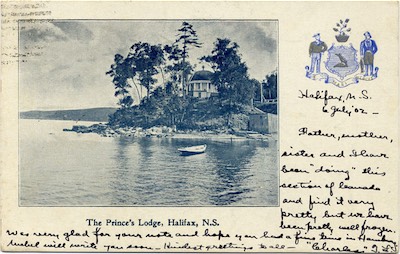 The Prince's Lodge, Halifax, N.S.
Halifax, N.S.
6 July '02 -
Father, mother,
sister and I have
been "doing" this
section of Canada
and find it very
pretty but we have
been pretty well frozen.
Was very glad for your note and hope you had a fine time in
Mabel will write you soon - Kindest greetings to all - "Charles"